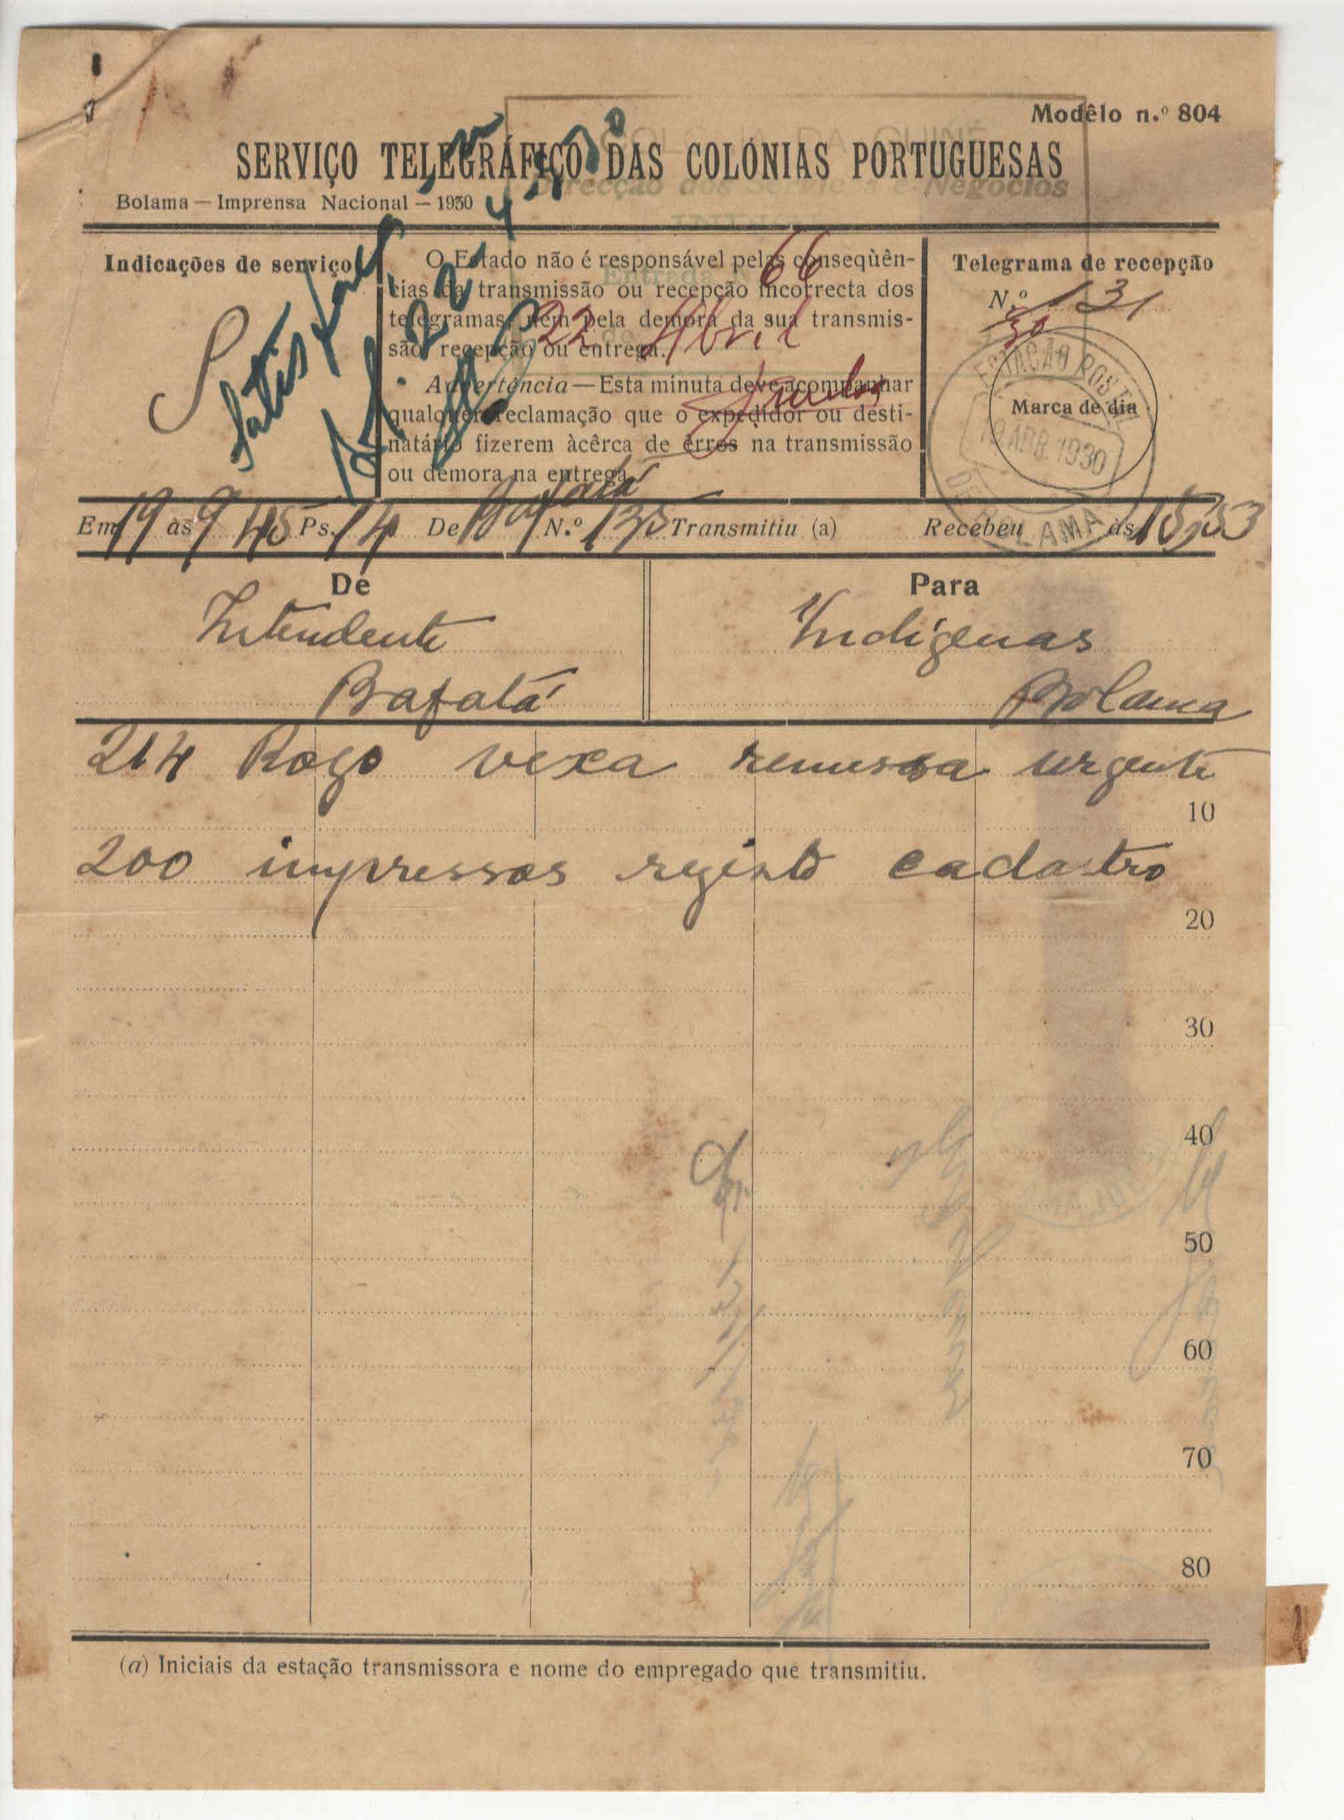 Modêlo n.º 804
COLONIA DA GUINÉ
SERVIÇO TELEGRÁFICO DAS COLÓNIAS PORTUGUESAS
Direcção dos Serviços e Negocios
Bolama — Imprensa Nacional — 1930
Indicações de serviço
S
22-4-930
O Estado não é responsável pelas conseqùên-
cias da transmissão ou recepção incorrecta dos
telegramas, nem pela demora da sua transmis-
são, recepção ou entrega.
Advertência — Esta minuta deve acompanhar
qualquer reclamação que o expedidor ou desti-
natário fizerem àcêrca de erros na transmissão
ou demora na entrega.
Entrada N.º 66
22 de Abril
Telegrama de recepção
N.º 131
30
Marca de dia
ESTAÇÃO POSTAL
19 ABR. 1930
DE BOLAMA
Em 19 às 9 45 Ps. 14 De Bafatá N.º 135 Transmitiu (a) Recebeu às 15,53
De
Intendente
Bafatá
Para
Indígenas
Bolama
214 Rogo vexa remessa urgente
10
200 impressos registo cadastro
20
30
40
50
60
70
80
(a) Iniciais da estação transmissora e nome do empregado que transmitiu.